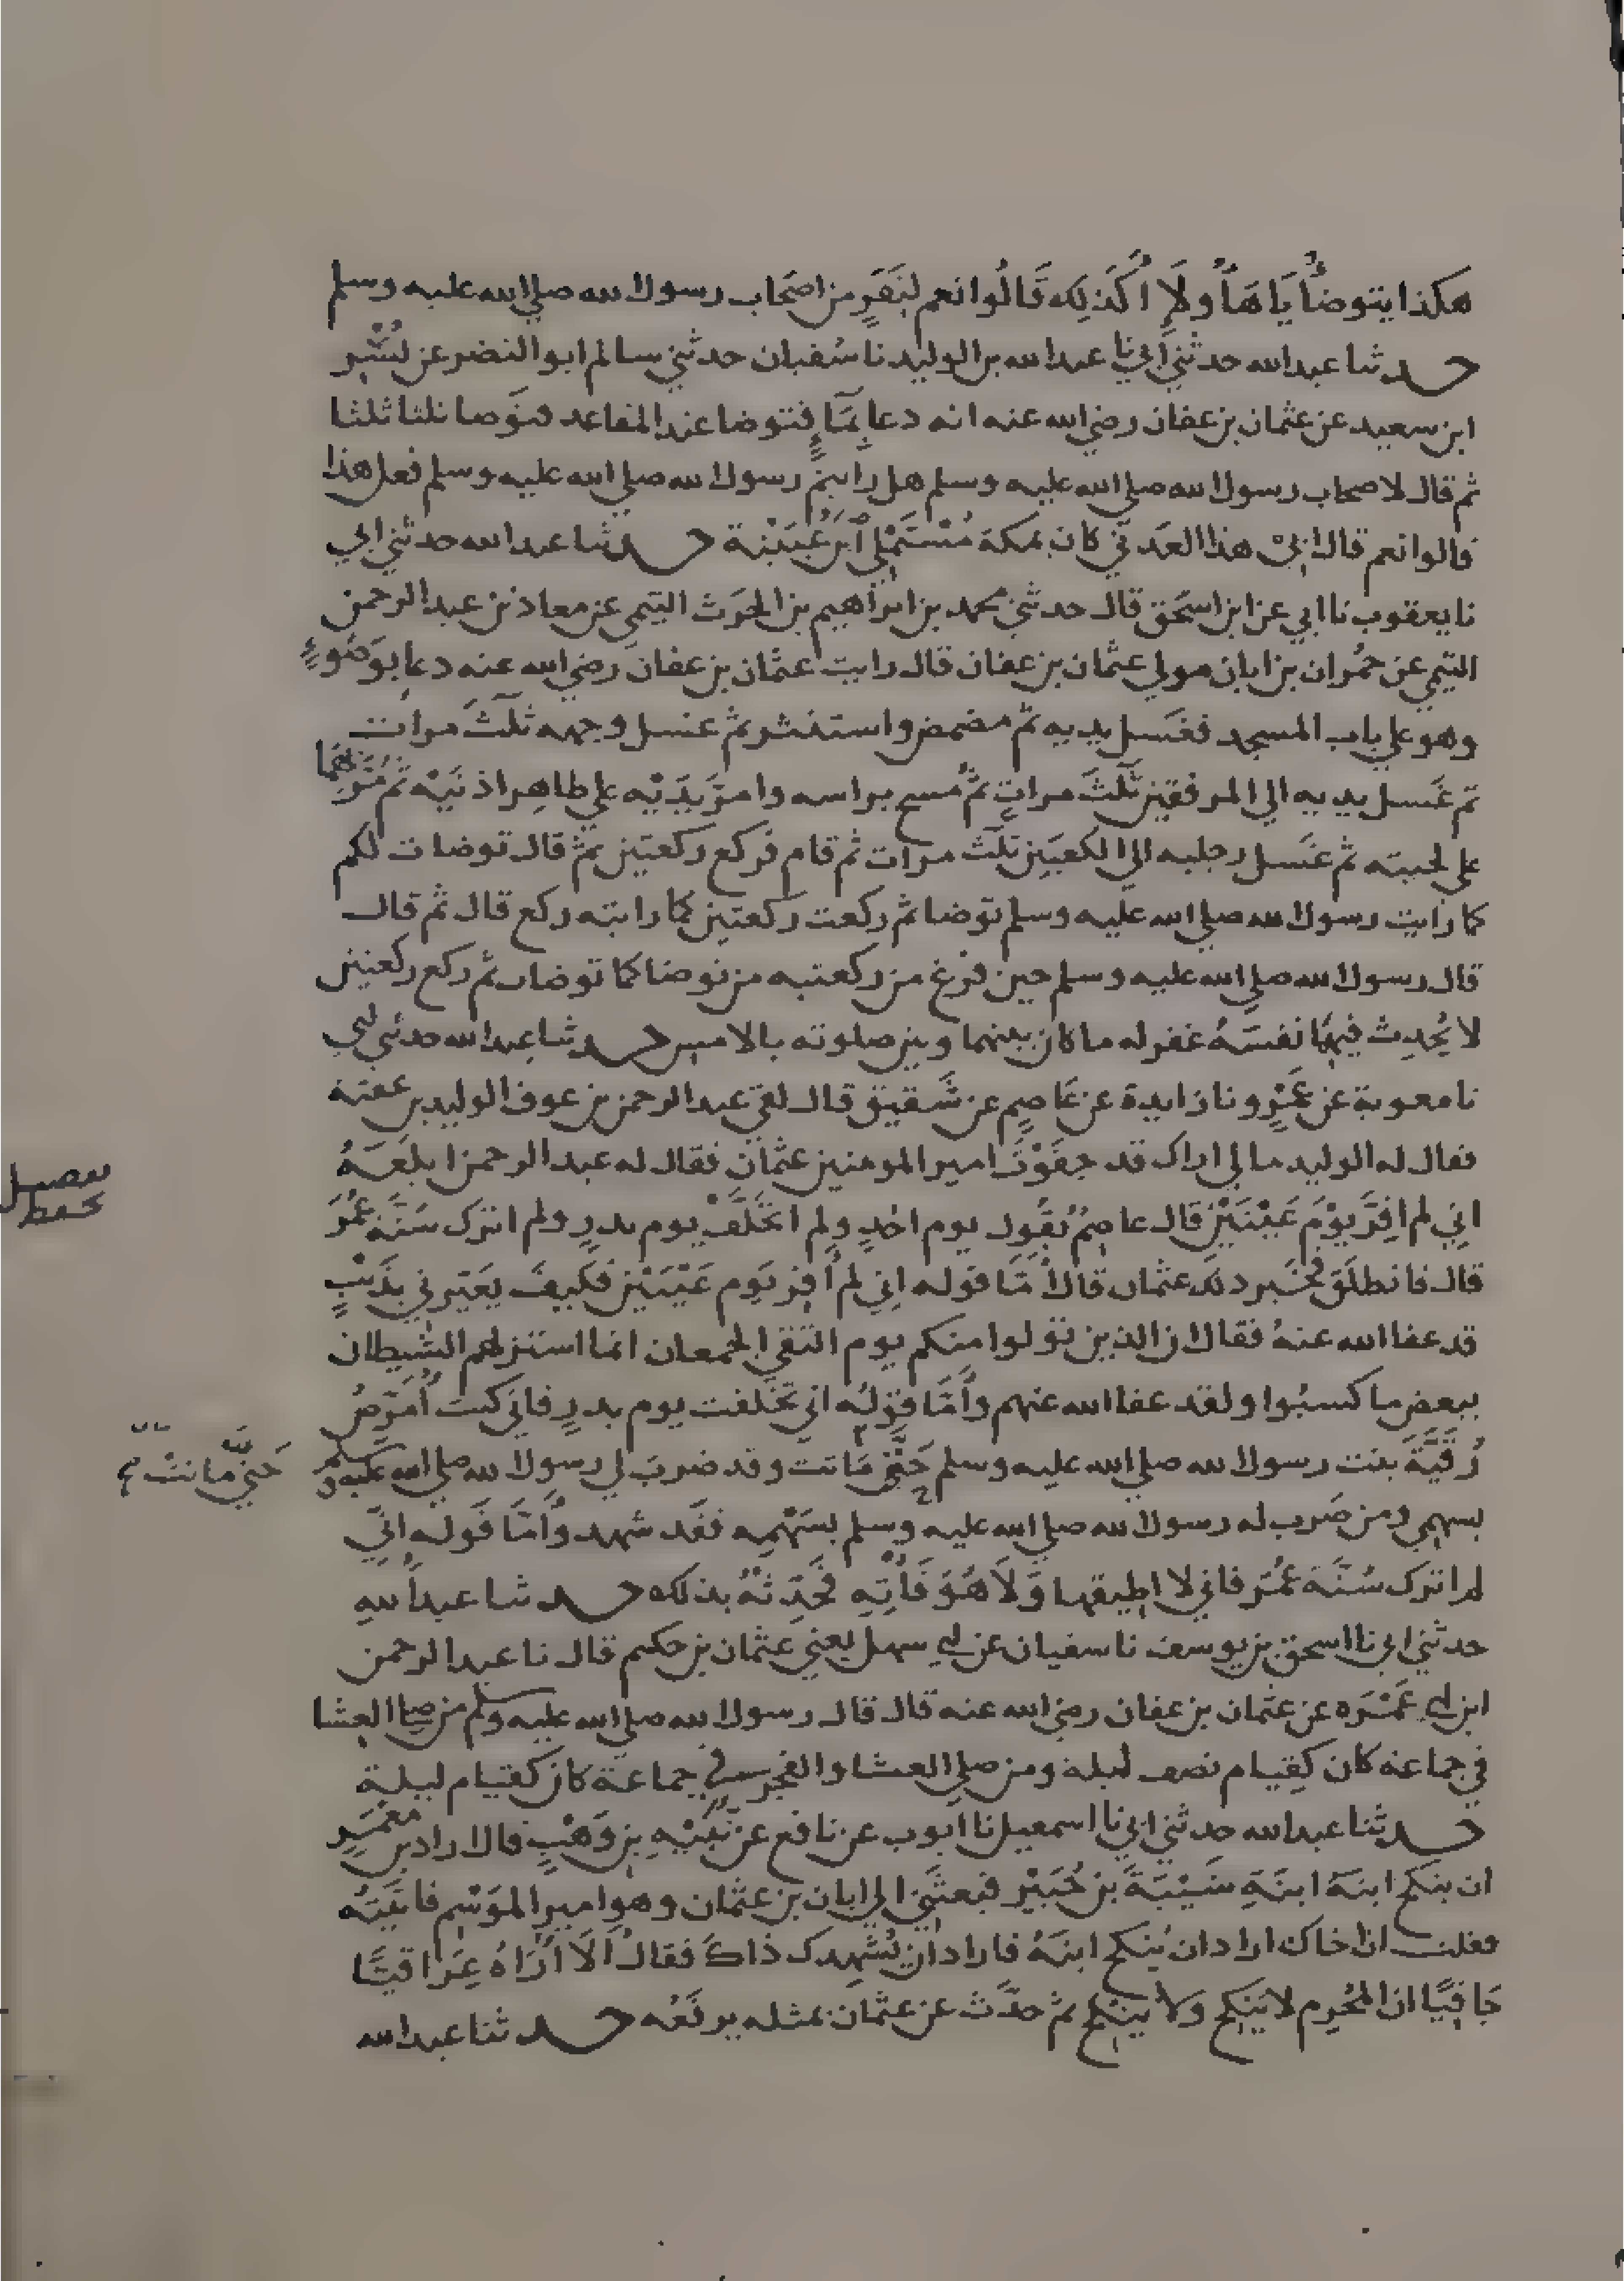 هكذا يتوضأ يا هأولاء أكذلك قالوا نعم لنفر من اصحاب رسول الله صلى الله عليه وسلم
حدثنا عبد الله حدثني ابي نا عبد الله بن الوليد نا سفيان حدثني سالم ابو النضر عن بُسْر
ابن سعيد عن عثمان بن عفان رضي الله عنه انه دعا بمآءٍ فتوضا عند المقاعد فتوضا ثلثا ثلثا
ثم قال لاصحاب رسول الله صلى الله عليه وسلم هل رايتم رسول الله صلى الله عليه وسلم فعل هذا
قالوا نعم قال ابي هذا العدني كان بمكة مُسْتَمْلِي ابن عُيَيْنة حدثنا عبد الله حدثني ابي
نا يعقوب نا ابي عن ابن اسحق قال حدثني محمد بن ابراهيم بن الحرث التيمي عن معاذ بن عبد الرحمن
التيمي عن حُمران بن ابان مولى عثمان بن عفان قال رايت عثمان بن عفان رضي الله عنه دعا بوَضُوءٍ
وهو على باب المسجد فغسل يديه ثم مضمض واستنثر ثم غسل وجهه ثلث مرات
ثم غسل يديه الى المرفقين ثلث مراتٍ ثم مسح براسه وامرّ يَدَيْه على ظاهِر اذنَيْه ثم مَرَّ بهما
على لحيته ثم غسل رجليه الى الكعبين ثلث مرات ثم قام فركع ركعتين ثم قال توضات لكم
كما رايت رسول الله صلى الله عليه وسلم توضا ثم ركعت ركعتين كما رايته ركع قال ثم قال
قال رسول الله صلى الله عليه وسلم حين فرغ من ركعتيه من توضا كما توضات ثم ركع ركعتين
لا يُحدِث فيهما نفسَهُ غفر له ما كان بينهما وبين صلوته بالامس حدثنا عبد الله حدثني ابي
نا معوية بن عَمْرٍو نا زايدة عن عَاصِمٍ عن شَقيق قال لقي عبد الرحمن بن عوف الوليد بن عقبة
فقال له الوليد ما لي اراك قد جفَوْتَ امير المومنين عثمان فقال له عبد الرحمن ابلغه
اني لم افِرَّ يوْمَ عَيْنَيْن قال عاصِمٌ يَقُول يوم احُدٍ ولم اتخَلَّفْ يوم بدرٍ ولم اترك سُنَّة عُمَرَ
قال فانطلَقَ فخبر ذلك عثمان قال أمّا قوله اني لم أفِر يَوم عَيْنَيْن فكيفَ يعَيّرني بذَنْبٍ
قد عفا الله عنهُ فقال ان الذين تولوا منكم يوم التقى الجمعان انما استزلهم الشيطان
ببعض ما كسبُوا ولقد عفا الله عنهم وأمّا قوله اني تخَلفت يوم بدرٍ فاني كنت أُمَرّضُ
رُقيَّةَ بنت رسول الله صلى الله عليه وسلم حَتّى مَاتت وقد ضرب لي رسول الله صلى الله عليه وسلم
بسهمي ومن ضَرب له رسول الله صلى الله عليه وسلم بسَهْمِه فقد شهد وأمّا قوله اني
لم اترك سُنَّةَ عُمَر فاني لا اطيقها وَلَا هُوَ فأْتِهِ فحَدِّثْهُ بذلك حدثنا عبد الله
حدثني ابي نا اسحق بن يوسف نا سفيان عن ابي سهل يعني عثمان بن حكيم قال نا عبد الرحمن
ابن ابي عَمْرَه عن عثمان بن عفان رضي الله عنه قال قال رسول الله صلى الله عليه وسلم من صلى العشا
في جماعة كان كقيام نصف ليلة ومن صلى العشا والفجر في جماعة كان كقيام ليلة
حدثنا عبد الله حدثني ابي نا اسمعيل نا ايوب عن نافع عن نُبَيْهِ بن وَهْبٍ قال اراد بن مَعْمَرٍ
ان ينكح ابنهُ ابنَةِ شَيْبَةَ بن جُبَيْرٍ فبعثني الى ابان بن عثمان وهو امير الموسم فاتيته
فقلت ان اخاك اراد ان يُنكح ابنهُ فاراد ان يُشهدك ذاك فقال ألا أُرَاهُ عِرَاقيًّا
جَافِيًا ان المُحْرِم لا يَنكح ولا يُنكح ثم حدّث عن عثمان بمثله يرفَعُه حدثنا عبد الله
حَتّى ماتتْ